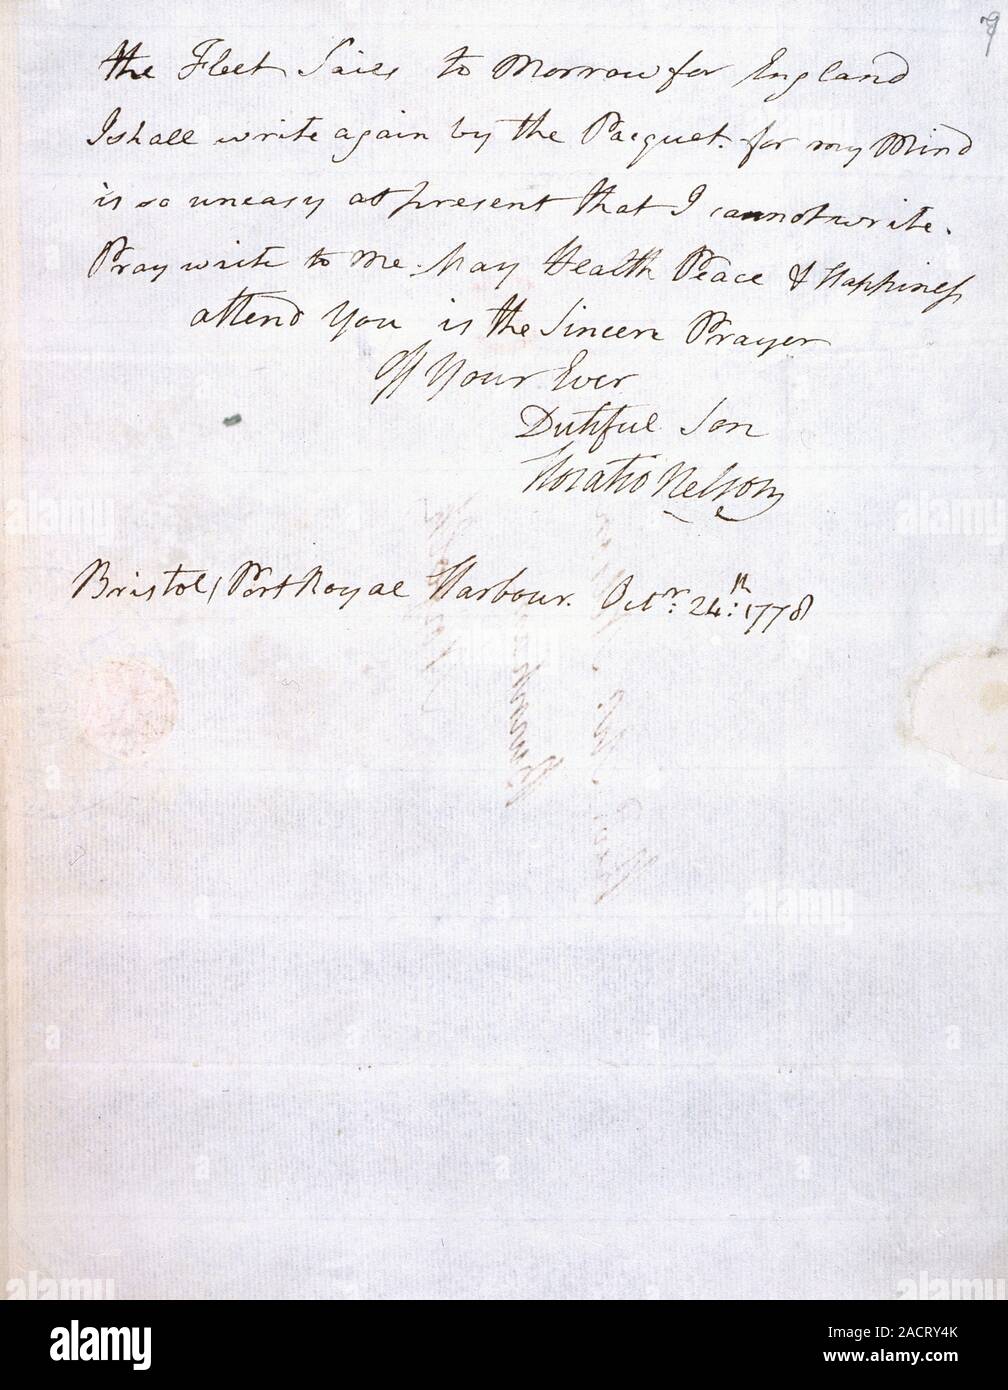 the Fleet Sails to Morrow for England
I shall write again by the Pacquet. for my Mind
is so uneasy at present that I cannot write.
Pray write to me. May Health Peace & Happiness
attend You is the Sincere Prayer
Of Your Ever
Dutiful Son
Horatio Nelson
Bristol, Port Royal Harbour. Octr: 24th: 1778
alamy
alamy
alamy
alamy
alamy
alamy
alamy
alamy
Image ID: 2ACRY4K
www.alamy.com